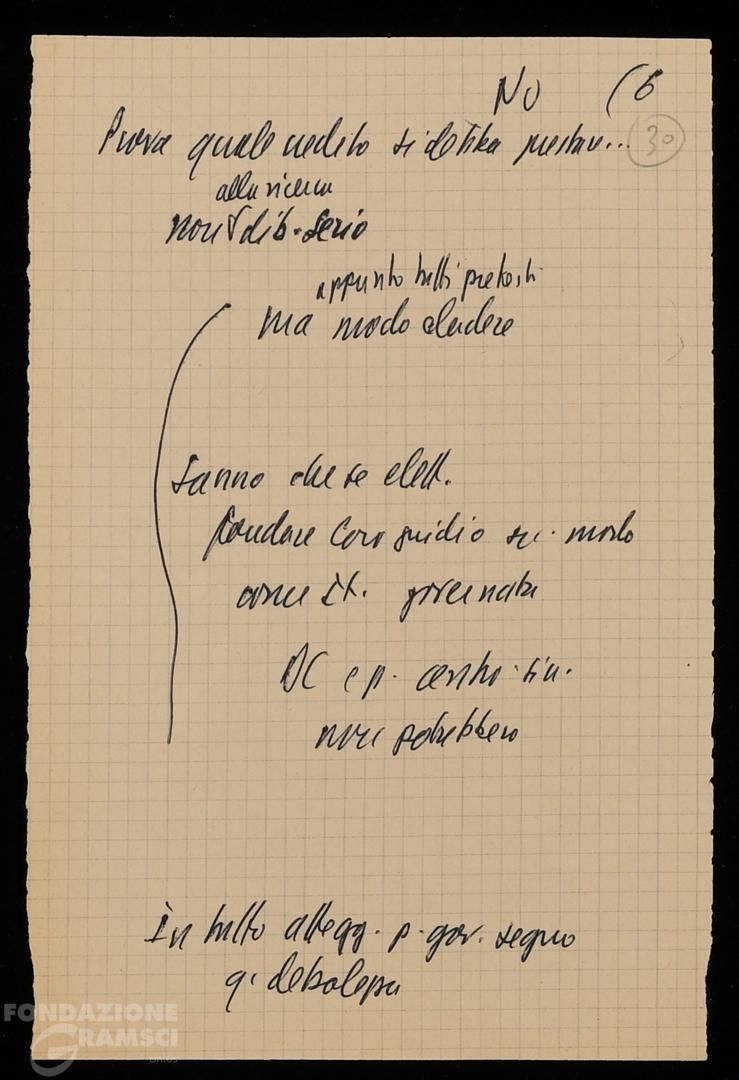 NO (6
30
Prova quale credito si debba prestare...
alla ricerca
non dib. serio
appunto tutti pretesti
ma modo eludere
Sanno che se elett.
fondare loro giudizio su modo
come It. governata
DC e p. centro-sin.
non potrebbero
In tutto attegg. p. gov. segno
di debolezza
FONDAZIONE
GRAMSCI
onlus